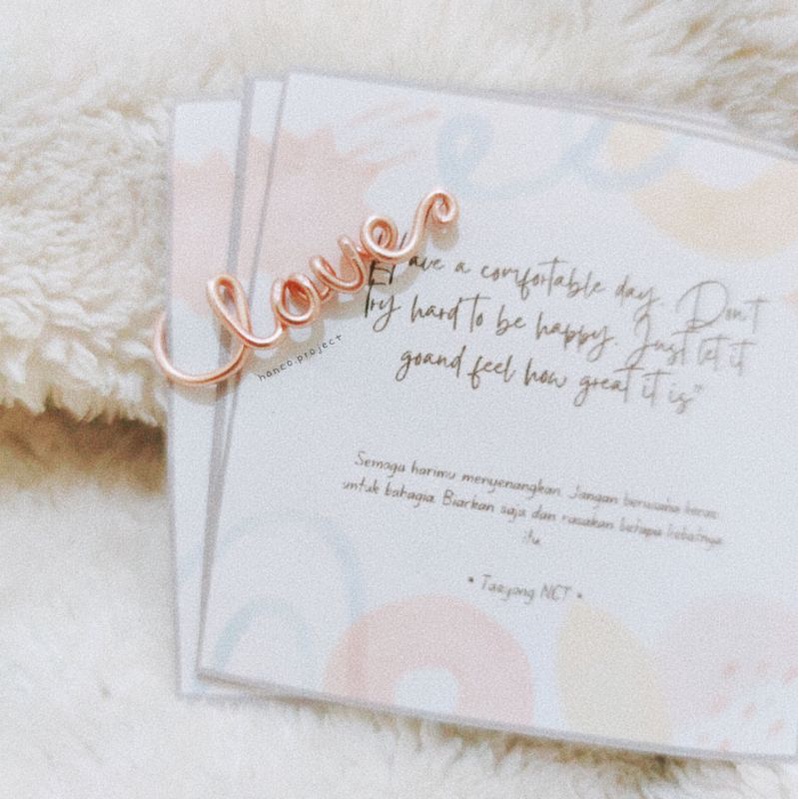 love
Have a comfortable day. Don't
Try hard to be happy. Just let it
goand feel how great it is"
hanco.project
Semoga harimu menyenangkan. Jangan berusaha keras
untuk bahagia. Biarkan saja dan rasakan betapa hebatnya
itu
• Taeyong NCT •